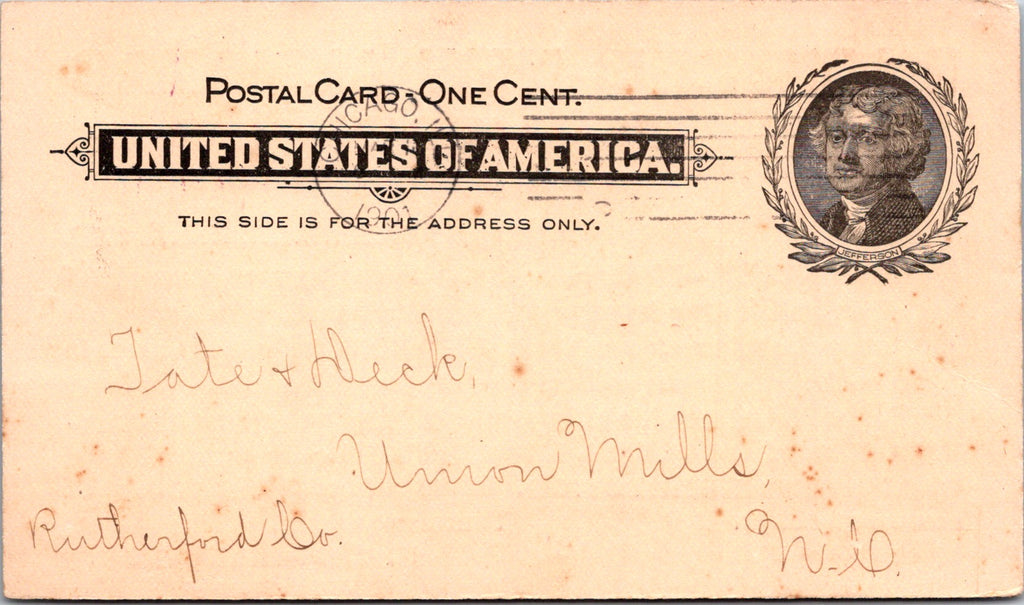 POSTAL CARD - ONE CENT.
UNITED STATES OF AMERICA.
THIS SIDE IS FOR THE ADDRESS ONLY.
JEFFERSON
CHICAGO, IL
1901
Tate & Heck,
Union Mills,
Rutherford Co.
N.C.